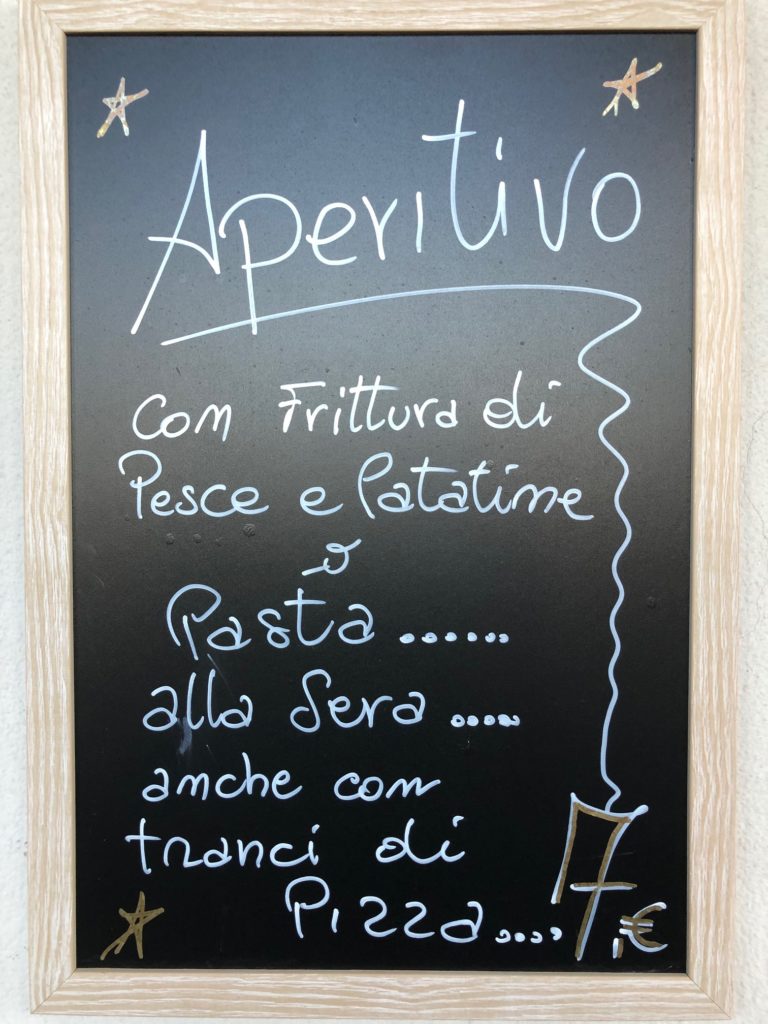 Aperitivo
con Frittura di
Pesce e Patatine
o
Pasta ......
alla Sera .....
anche con
tranci di
Pizza.... 7,€